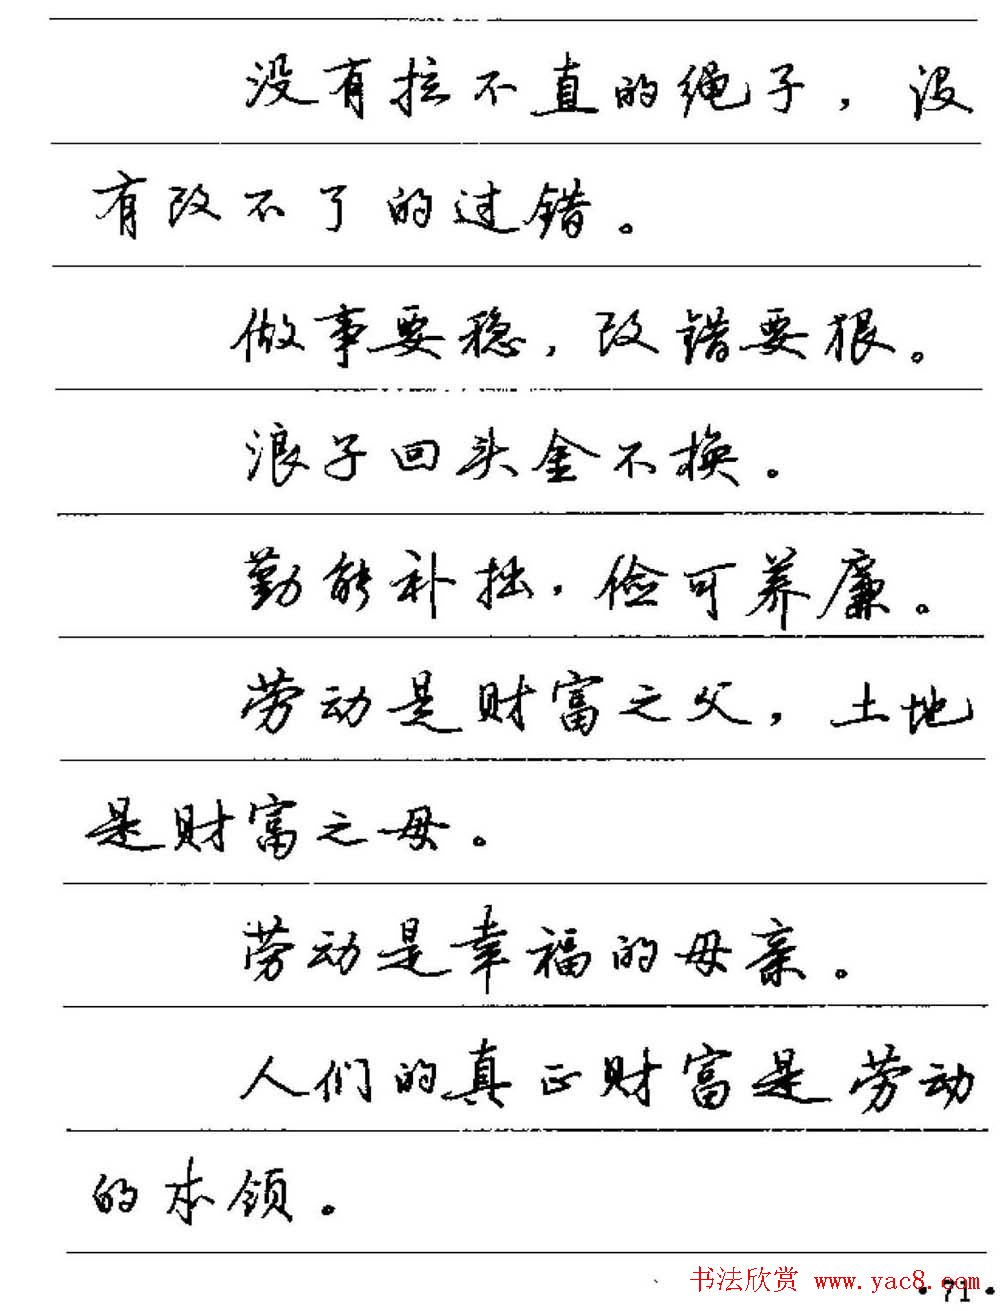 没有拉不直的绳子，没
有改不了的过错。
做事要稳，改错要狠。
浪子回头金不换。
勤能补拙，俭可养廉。
劳动是财富之父，土地
是财富之母。
劳动是幸福的母亲。
人们的真正财富是劳动
的本领。
书法欣赏 www.yac8.com
·71·